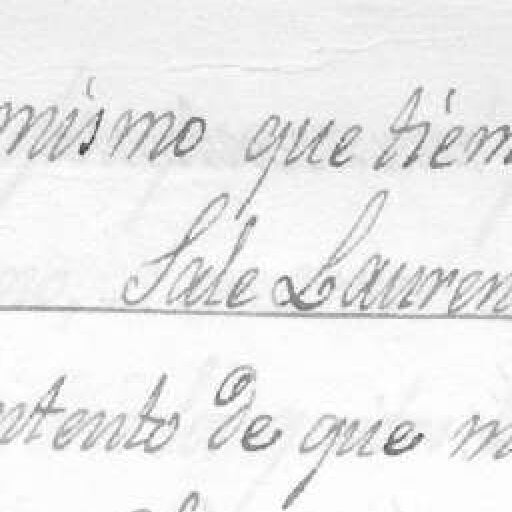 mismo que tiem
Sale Lauren
ntento de que m